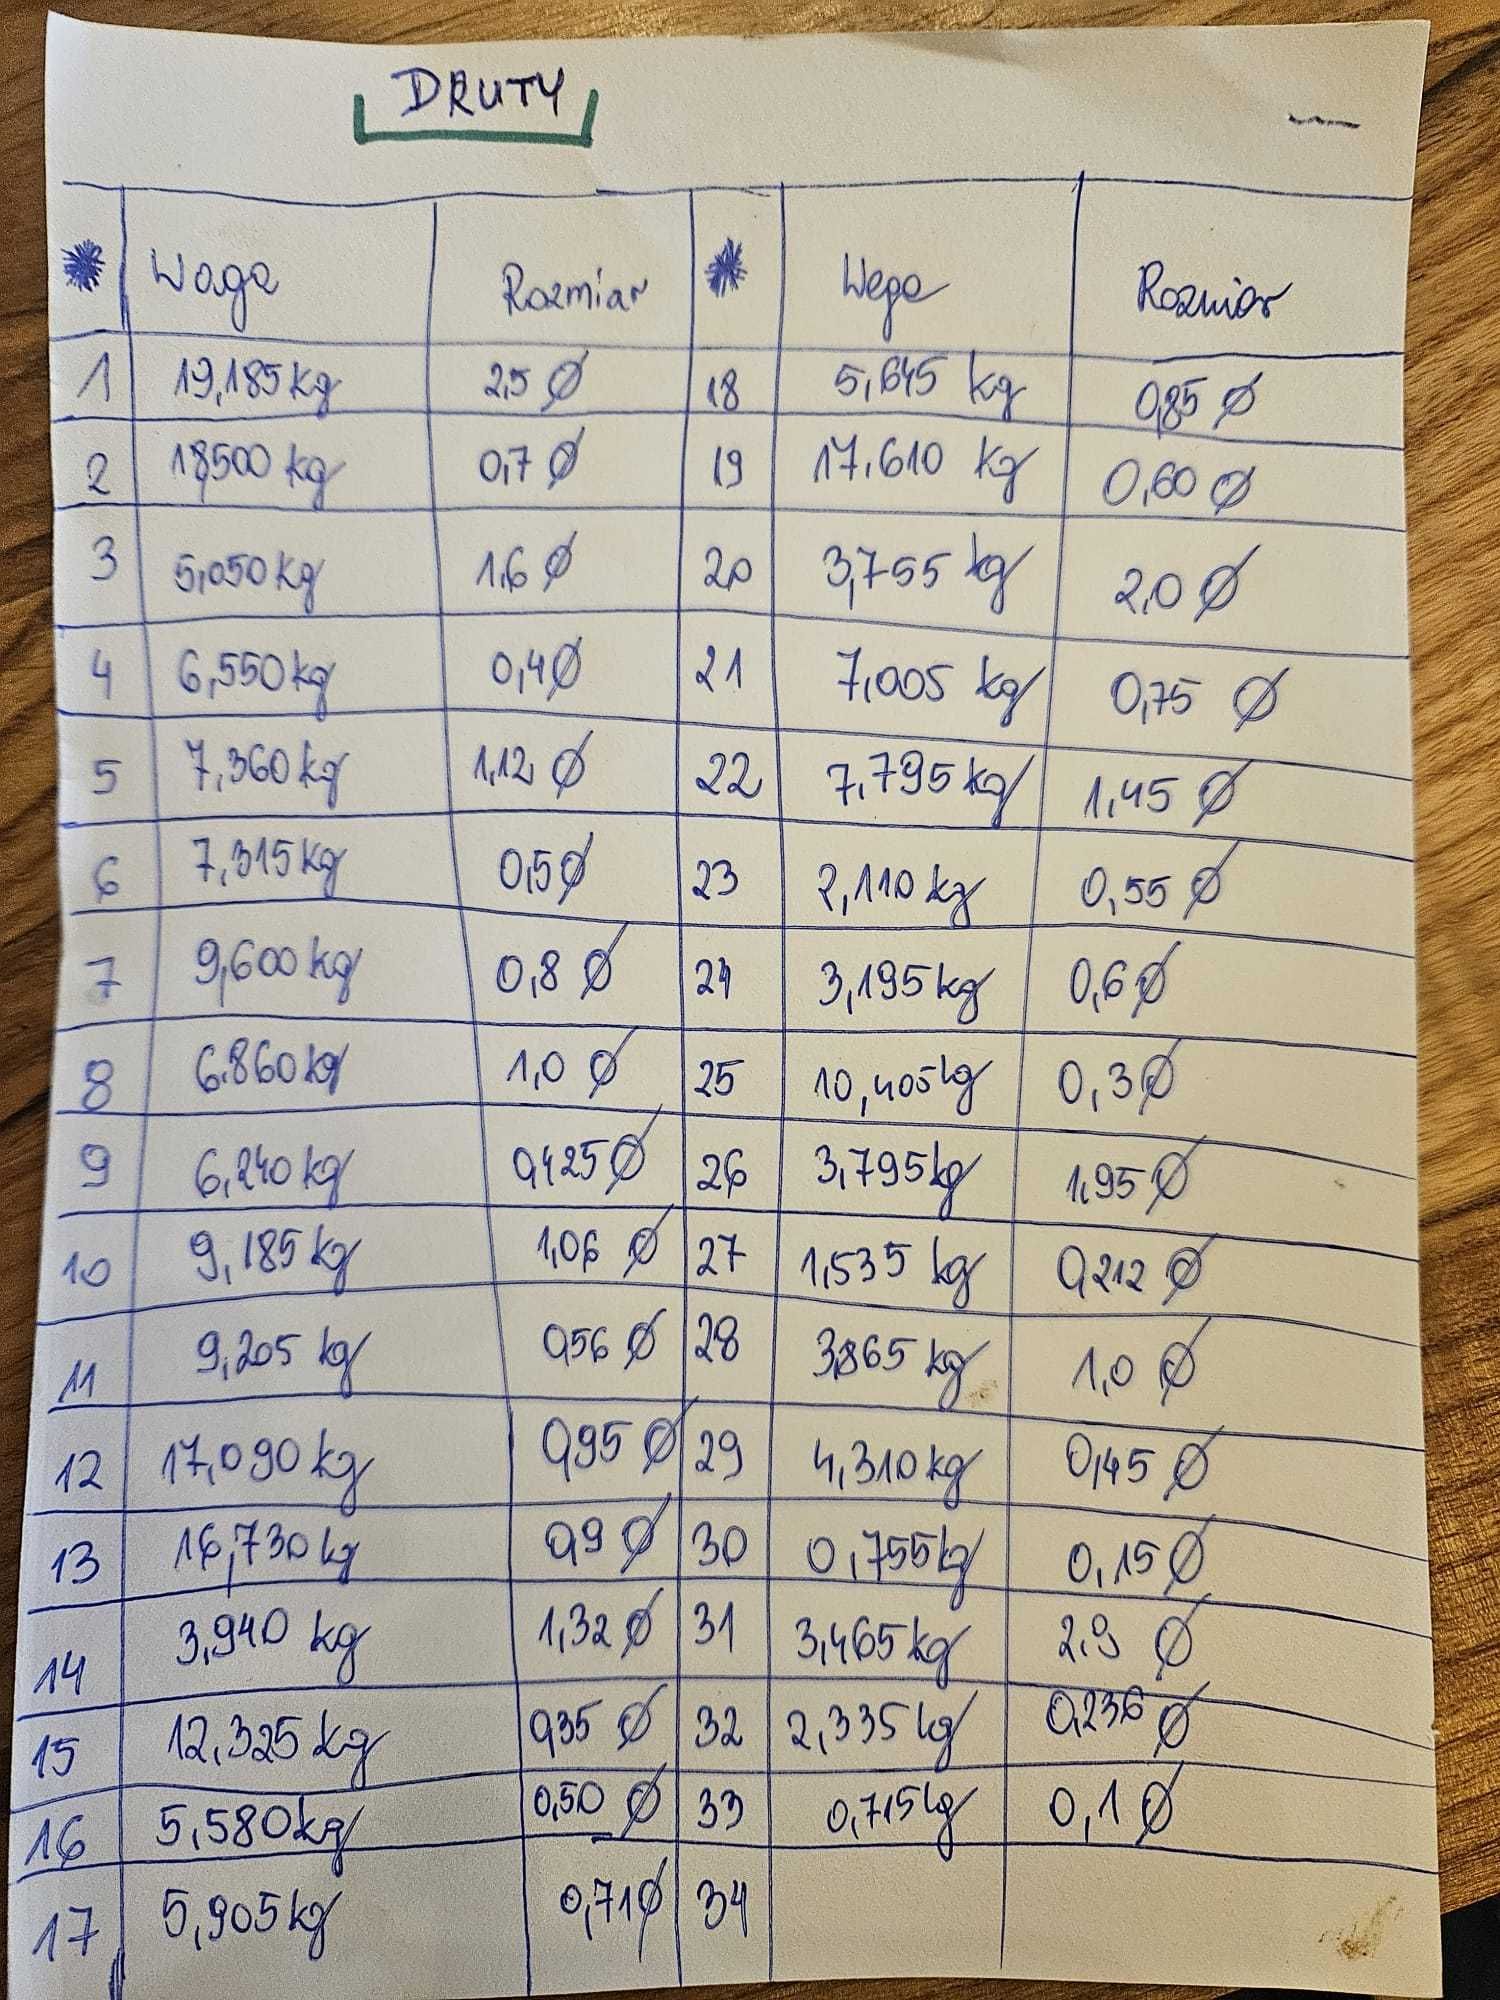 DRUTY
Waga Rozmiar Waga Rozmiar
1 19,185 kg 2,5 Ø 18 5,645 kg 0,85 Ø
2 18,500 kg 0,7 Ø 19 17,610 kg 0,60 Ø
3 5,050 kg 1,6 Ø 20 3,755 kg 2,0 Ø
4 6,550 kg 0,4 Ø 21 7,005 kg 0,75 Ø
5 7,360 kg 1,12 Ø 22 7,795 kg 1,45 Ø
6 7,315 kg 0,5 Ø 23 2,110 kg 0,55 Ø
7 9,600 kg 0,8 Ø 24 3,195 kg 0,6 Ø
8 6.860 kg 1,0 Ø 25 10,405 kg 0,3 Ø
9 6,240 kg 0,425 Ø 26 3,795 kg 1,95 Ø
10 9,185 kg 1,06 Ø 27 1,535 kg 0,212 Ø
11 9,205 kg 0,56 Ø 28 3,865 kg 1,0 Ø
12 17,090 kg 0,95 Ø 29 4,310 kg 0,45 Ø
13 16,730 kg 0,9 Ø 30 0,755 kg 0,15 Ø
14 3,940 kg 1,32 Ø 31 3,465 kg 2,9 Ø
15 12,325 kg 0,35 Ø 32 2,335 kg 0,236 Ø
16 5,580 kg 0,50 Ø 33 0,715 kg 0,1 Ø
17 5,905 kg 0,71 Ø 34